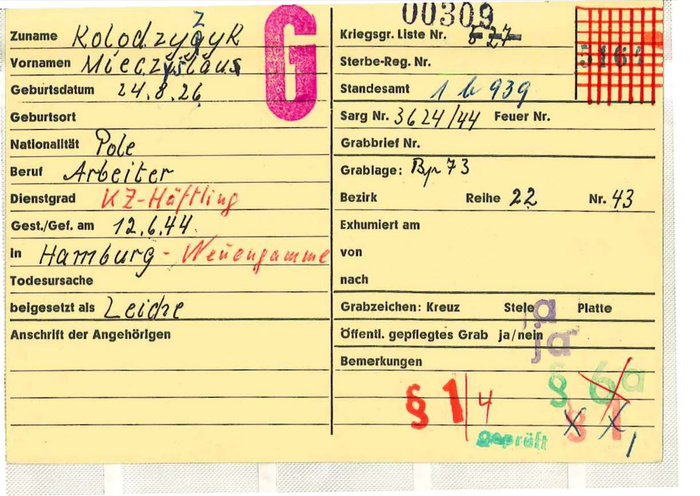 Zuname Kolodzyzyk
Vornamen Mieczyslaus
Geburtsdatum 24.8.26
Geburtsort
Nationalität Pole
Beruf Arbeiter
Dienstgrad KZ-Häftling
Gest./Gef. am 12.6.44
in Hamburg - Neuengamme
Todesursache
beigesetzt als Leiche
Anschrift der Angehörigen
G
00309
Kriegsgr. Liste Nr.
Sterbe-Reg. Nr.
Standesamt 1 b 939
Sarg Nr. 3624/44 Feuer Nr.
Grabbrief Nr.
Grablage: Bp 73
Bezirk Reihe 22 Nr. 43
Exhumiert am
von
nach
Grabzeichen: Kreuz Stele ja Platte
Öffentl. gepflegtes Grab ja/nein
ja
Bemerkungen
§ 1/4 § 6a
geprüft § 1
X X